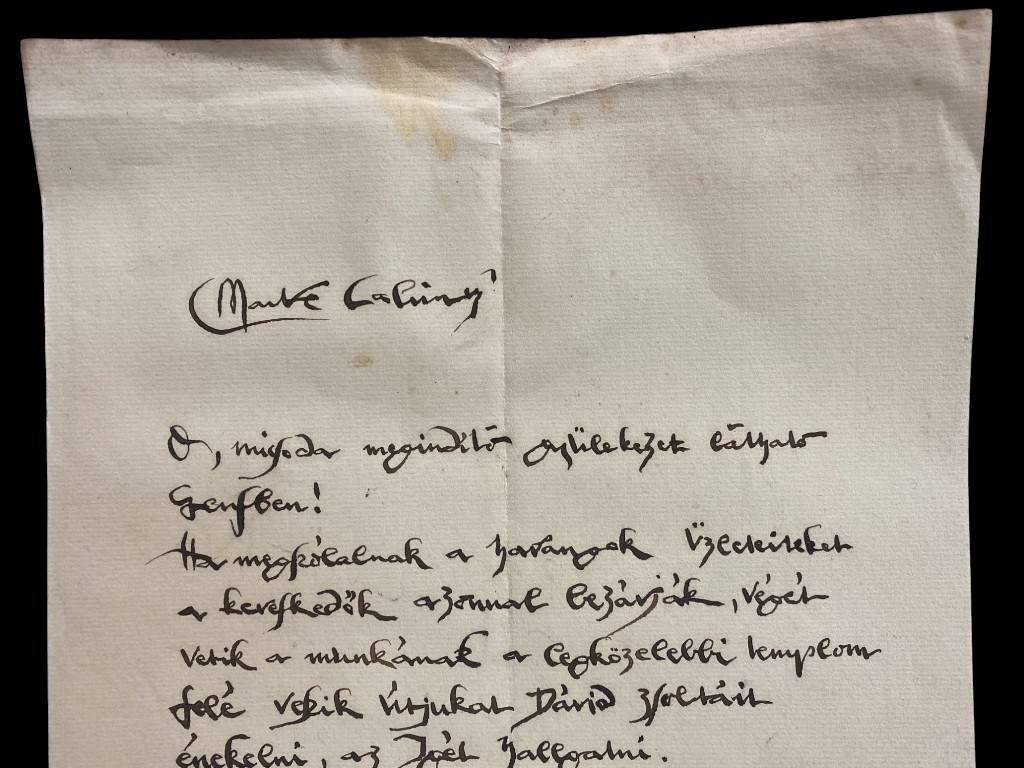 O, micsoda megindító gyülekezet látható
Genfben!
Ha megszólalnak a harangok Üzleteiteket
a kereskedők azonnal bezárják, végét
vetik a munkának a legközelebbi templom
felé veszik útjukat Dávid zsoltáit
énekelni, az Igét hallgatni.